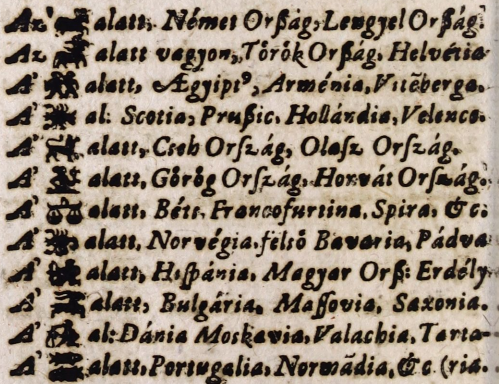 Az' ♈ alatt, Német Orſzág, Lengyel Orſzág.
Az ♉ alatt vagyon, Török Orſzág, Helvétia
A' ♊ alatt, Ægyipt⁹, Arménia, Vitēberga.
A' ♋ al: Scotia, Pruſsic, Hollándia, Velence.
A' ♌ alatt, Cseh Orſzág, Olasz Orſzág.
A' ♍ alatt, Görög Orſzág, Horvát Orſzág.
A' ♎ alatt, Béts, Francofurtina, Spira, &c:
A' ♏ alatt, Norvégia, felsö Bavaria, Pádva
A' ♐ alatt, Hiſpánia, Magyar Orſz: Erdély
A' ♑ alatt, Bulgária, Maſſovia, Saxonia.
A' ♒ al: Dánia Moskavia, Valachia, Tarta-
A' ♓ alatt, Portugalia, Normādia, &c. (ria.